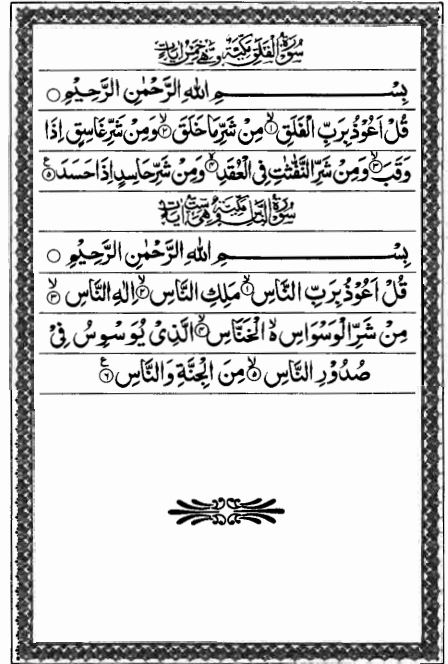 سُوْرَةُ الْفَلَقِ مَكِّيَّةٌ وَّهِيَ خَمْسُ اٰيَاتٍ
بِسْــــــــــــمِ اللهِ الرَّحْمٰنِ الرَّحِيْمِ ○
قُلْ اَعُوْذُ بِرَبِّ الْفَلَقِ ۙ﴿۱﴾ مِنْ شَرِّ مَا خَلَقَ ۙ﴿۲﴾ وَمِنْ شَرِّ غَاسِقٍ اِذَا
وَقَبَ ۙ﴿۳﴾ وَمِنْ شَرِّ النَّفّٰثٰتِ فِي الْعُقَدِ ۙ﴿۴﴾ وَمِنْ شَرِّ حَاسِدٍ اِذَا حَسَدَ ﴿۵﴾ ع
سُوْرَةُ النَّاسِ مَكِّيَّةٌ وَّهِيَ سِتُّ اٰيَاتٍ
بِسْــــــــــــمِ اللهِ الرَّحْمٰنِ الرَّحِيْمِ ○
قُلْ اَعُوْذُ بِرَبِّ النَّاسِ ۙ﴿۱﴾ مَلِكِ النَّاسِ ۙ﴿۲﴾ اِلٰهِ النَّاسِ ۙ﴿۳﴾
مِنْ شَرِّ الْوَسْوَاسِ ۙ۬ الْخَنَّاسِ ۙ﴿۴﴾ الَّذِيْ يُوَسْوِسُ فِيْ
صُدُوْرِ النَّاسِ ۙ﴿۵﴾ مِنَ الْجِنَّةِ وَالنَّاسِ ﴿۶﴾ ع